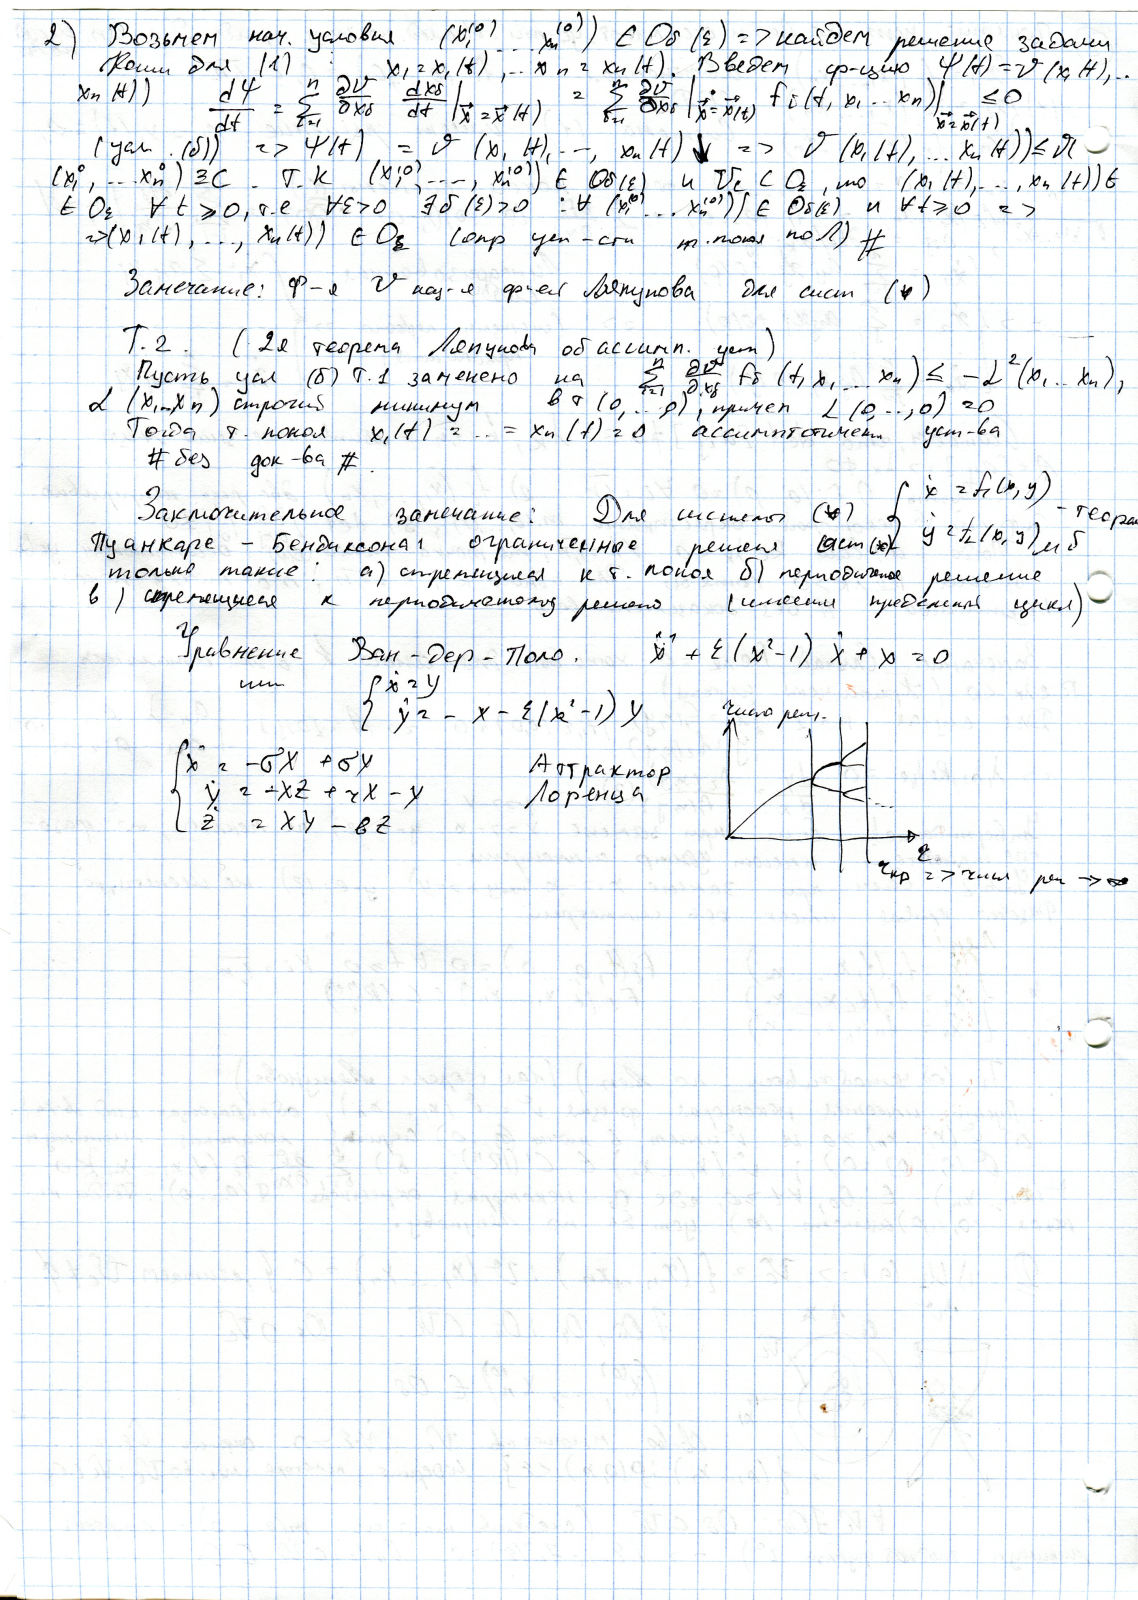 2) Возьмем нач. условия (x₁⁽⁰⁾, ... xₙ⁽⁰⁾) ∈ Oδ(ε) => найдем решение задачи
Коши для (1) : x₁ = x₁(t), ... xₙ = xₙ(t). Введем ф-цию Ψ(t) = v(x₁(t), ...
xₙ(t)) dΨ/dt = Σ ∂v/∂xi dxi/dt |x⃗=x⃗(t) = Σ ∂v/∂xi |x⃗=x⃗(t) fi(t, x₁ ... xₙ)|x⃗=x⃗(t) ≤ 0
(усл. (б)) => Ψ(t) = v(x₁(t), ..., xₙ(t)) ↓ => v(x₁(t), ... xₙ(t)) ≤ v(
(x₁⁰, ... xₙ⁰) ≡ C. Т.к (x₁⁽⁰⁾, ..., xₙ⁽⁰⁾) ∈ Oδ(ε) и Vc ⊂ Oε, то (x₁(t), ..., xₙ(t)) ∈
∈ Oε ∀ t ≥ 0, т.е ∀ε>0 ∃δ(ε)>0 : ∀ (x₁⁽⁰⁾ ... xₙ⁽⁰⁾) ∈ Oδ(ε) и ∀t≥0 =>
=> (x₁(t), ..., xₙ(t)) ∈ Oε (опр уст-сти т. покоя по Л) #
Замечание: Ф-я v наз-я ф-ей Ляпунова для сист (*)
Т.2. (2я теорема Ляпунова об ассимп. уст)
Пусть усл (б) Т.1 заменено на Σ ∂v/∂xi fi(t, x₁ ... xₙ) ≤ -L²(x₁ ... xₙ),
L (x₁...xₙ) строгий минимум в т (0, ... 0), причем L(0, ..., 0) = 0
Тогда т. покоя x₁(t) = ... = xₙ(t) = 0 ассимптотичен уст-ва
# без док-ва #.
Заключительное замечание: Для системы (*) { ẋ = f₁(x, y)
ẏ = f₂(x, y) - теорема
Пуанкаре - Бендиксона: ограниченные решения сист(*) м б
только такие: а) стремящиеся к т. покоя б) периодичное решение
в) стремящиеся к периодическому решению (имеем предельный цикл)
Уравнение Ван-дер-Поло. ẍ + ε(x² - 1) ẋ + x = 0
или { ẋ = y
ẏ = - x - ε(x² - 1) y
число реш.
{ ẋ = -σX + σY Аттрактор
ẏ = -XZ + rX - y Лоренца
ż = XY - bZ
r
rкр => числ реш → ∞